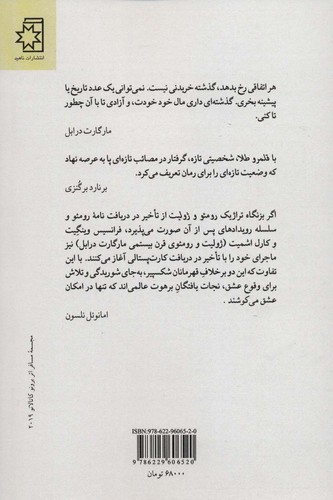 انتشارات ناهید
هر اتفاقی رخ بدهد، گذشته خریدنی نیست. نمی‌توانی یک عدد تاریخ یا
پیشینه بخری. گذشته‌ای داری مال خود خودت، و آزادی تا با آن چطور
تا کنی.
مارگارت درابل
با قلمرو طلا، شخصیتی تازه، گرفتار در مصائب تازه‌ای پا به عرصه نهاد
که وضعیت تازه‌ای را برای رمان تعریف می‌کرد.
برنارد برگنزی
اگر بزنگاه تراژیک رومئو و ژولیت از تأخیر در دریافت نامهٔ رومئو و
سلسله رویدادهای پس از آن صورت می‌پذیرد، فرانسیس وینگیت
و کارل اشمیت (ژولیت و رومئوی قرن بیستمی مارگارت درابل) نیز
ماجرای خود را با تأخیر در دریافت کارت‌پستالی آغاز می‌کنند. با این
تفاوت که این دو برخلاف قهرمانان شکسپیر، به‌جای شوریدگی و تلاش
برای وقوع عشق، نجات یافتگانِ برهوت عالمی‌اند که تنها در امکان
عشق می‌کوشند.
امانوئل نلسون
مجسمهٔ مسافر اثر برونو کاتالانو ۲۰۱۹
ISBN: 978-622-96065-2-0
9 786229 606520
۶۸۰۰۰ تومان